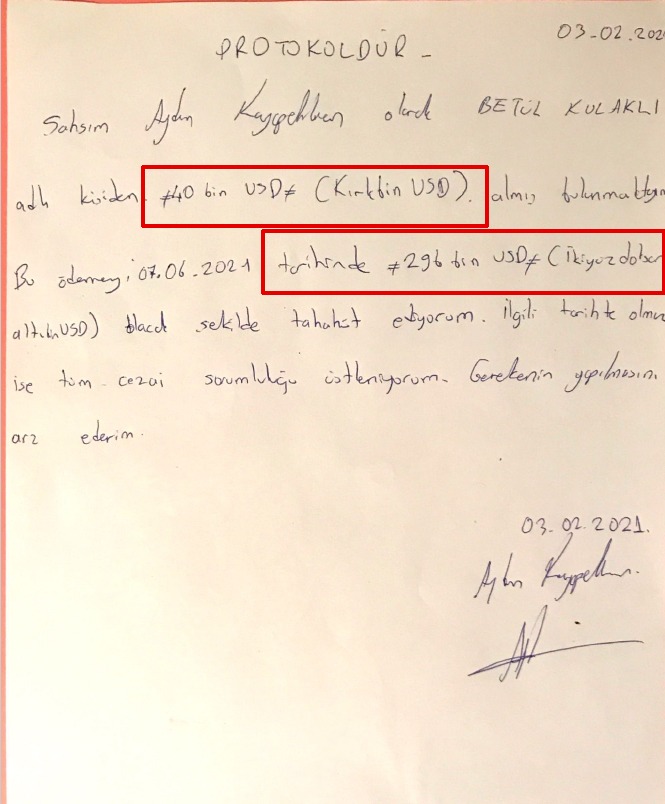 03-02.202
PROTOKOLDÜR -
Şahsım Aydın olarak BETÜL KULAKLI
adlı kişiden ≠40 bin USD≠ (Kırkbin USD). almış bulunmaktayım
Bu ödemeyi 07.06.2021 tarihinde ≠296 bin USD≠ (İkiyüzdoksan
altıbinUSD) olacak şekilde tahahüt ediyorum. İlgili tarihte olmaz
ise tüm cezai sorumluluğu üstleniyorum. Gerekenin yapılmasını
arz ederim.
03.02.2021.
Aydın